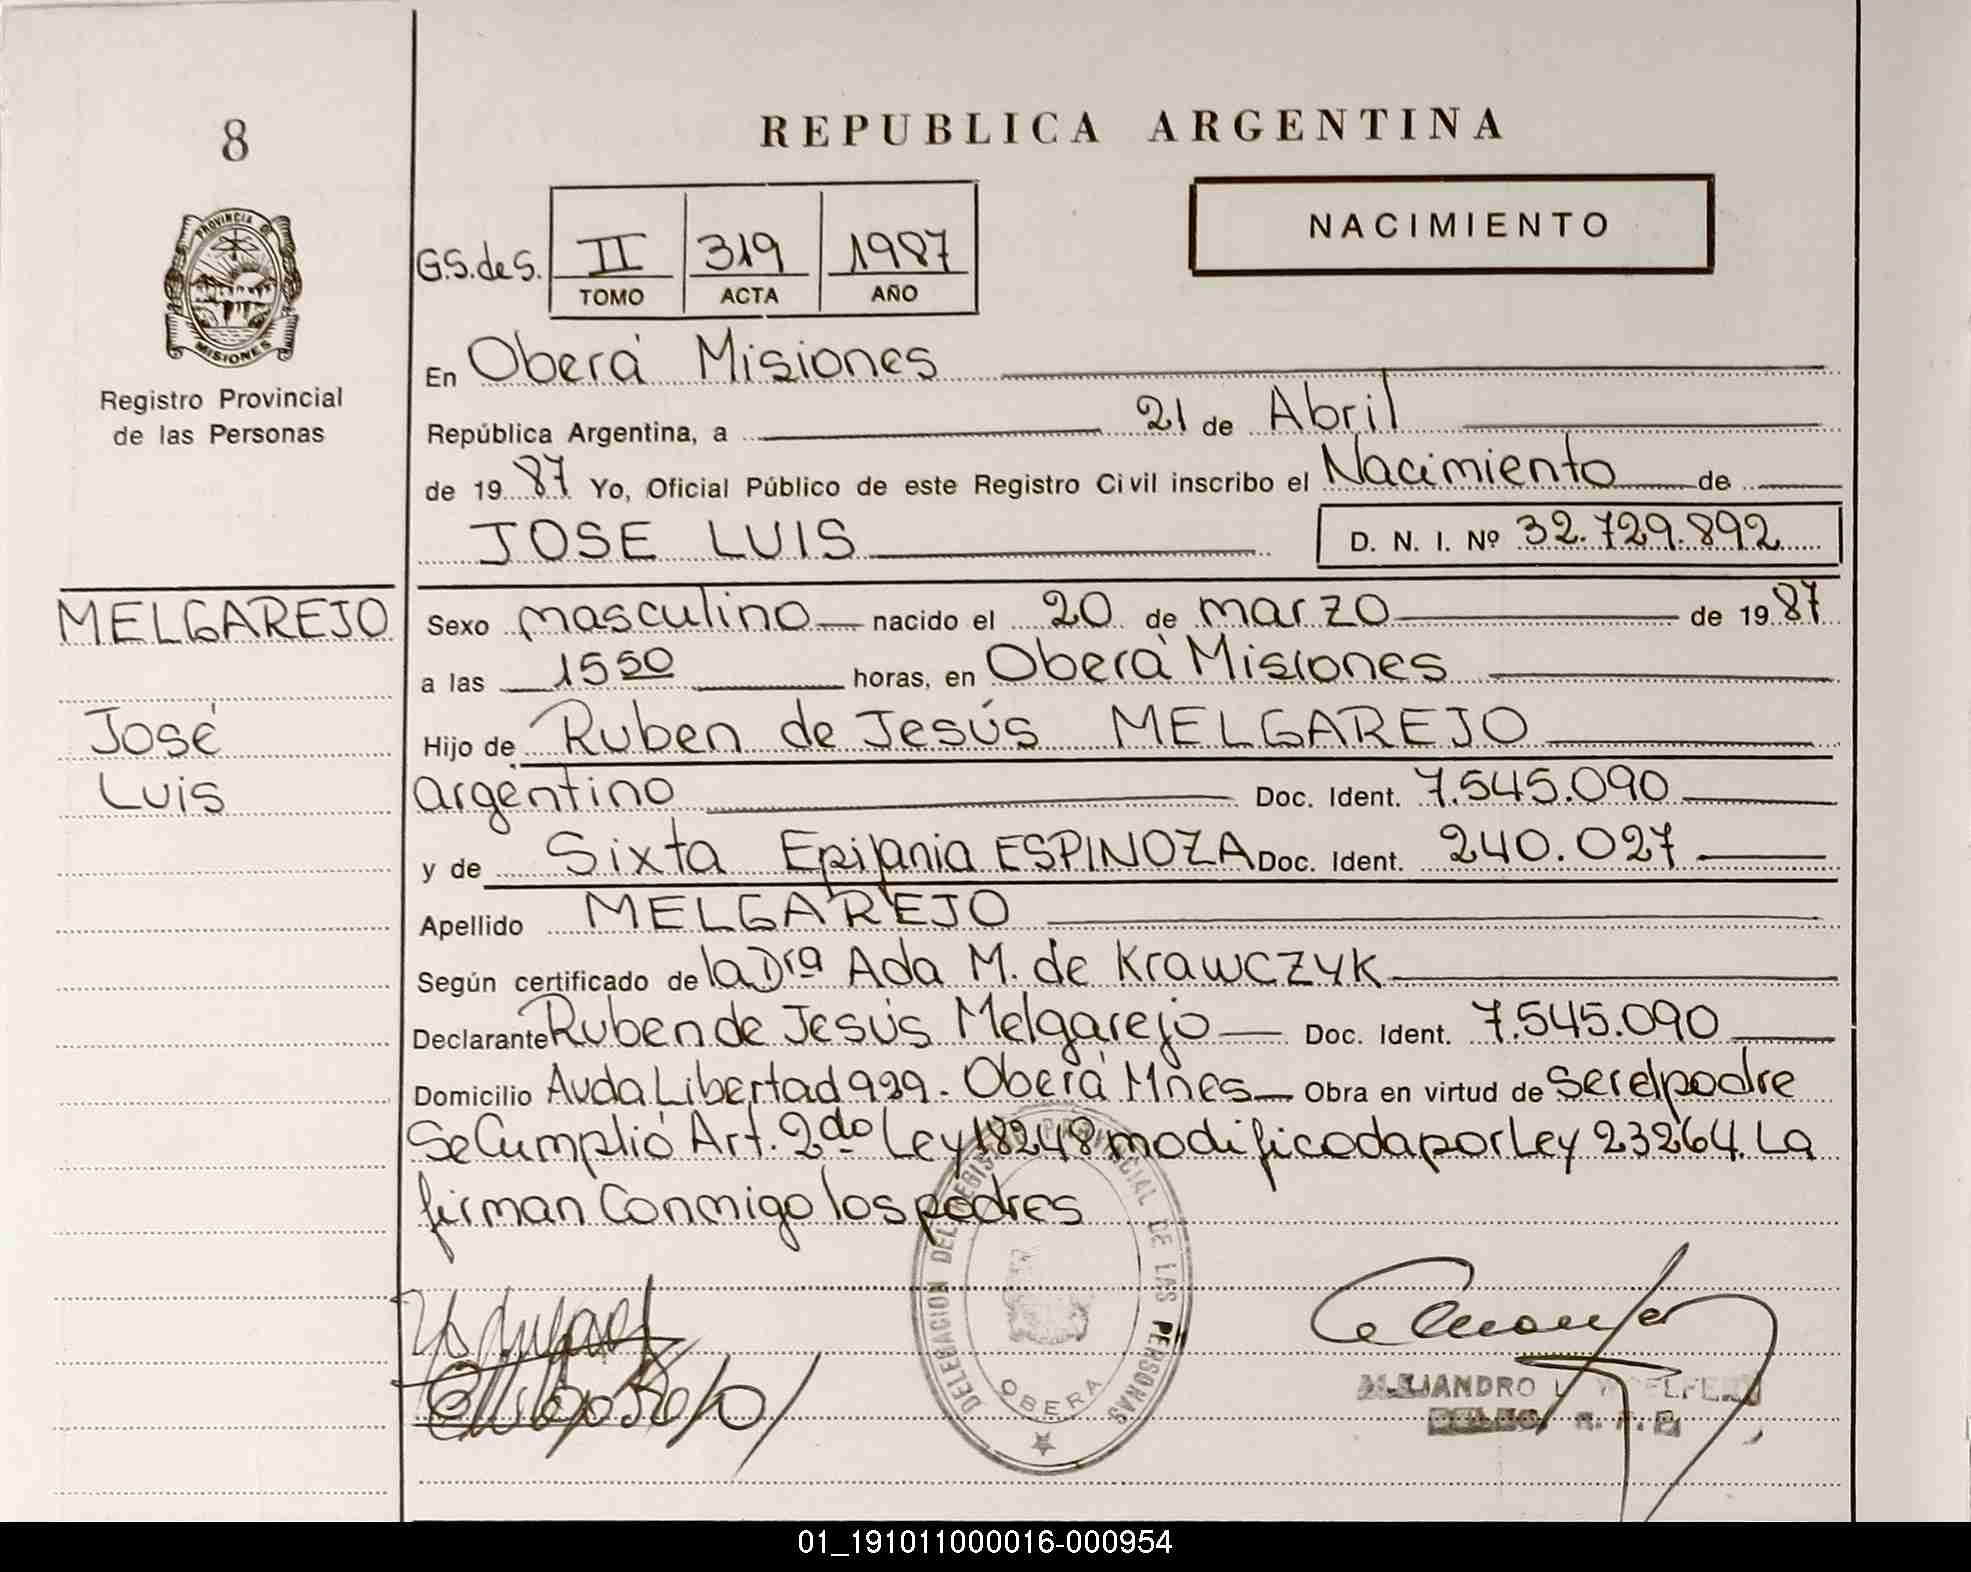 8
REPUBLICA ARGENTINA
PROVINCIA
MISIONES
Registro Provincial
de las Personas
NACIMIENTO
G.S.de S. II 319 1987
TOMO ACTA AÑO
En Oberá Misiones
República Argentina, a 21 de Abril
de 19 87 Yo, Oficial Público de este Registro Civil inscribo el Nacimiento de
JOSE LUIS D. N. I. Nº 32.729.892
MELGAREJO
José
Luis
Sexo masculino nacido el 20 de marzo de 19 87
a las 15 50 horas, en Oberá Misiones
Hijo de Ruben de Jesús MELGAREJO
argentino Doc. Ident. 7.545.090
y de Sixta Epifania ESPINOZA Doc. Ident. 240.027
Apellido MELGAREJO
Según certificado de la Dra Ada M. de Krawczyk
Declarante Ruben de Jesús Melgarejo Doc. Ident. 7.545.090
Domicilio Avda Libertad 929. Oberá Mnes Obra en virtud de ser el padre
Se Cumplió Art. 2do Ley 18248 modificada por Ley 23264. La
firman Conmigo los padres
DELEGACION DEL REGISTRO PROVINCIAL DE LAS PERSONAS
OBERA
ALEJANDRO
01_191011000016-000954